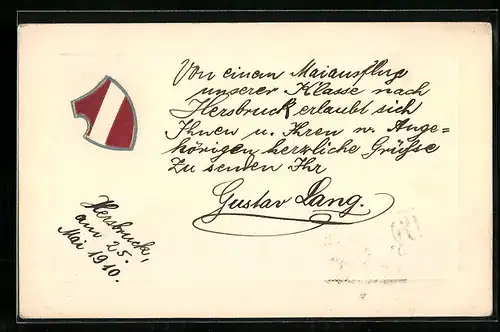 Von einem Maiausflug
unserer Klasse nach
Hersbruck erlaubt sich
Ihnen u. Ihren w. Ange=
hörigen herzliche Grüsse
zu senden Ihr
Gustav Lang.
Hersbruck,
am 25.
Mai 1910.